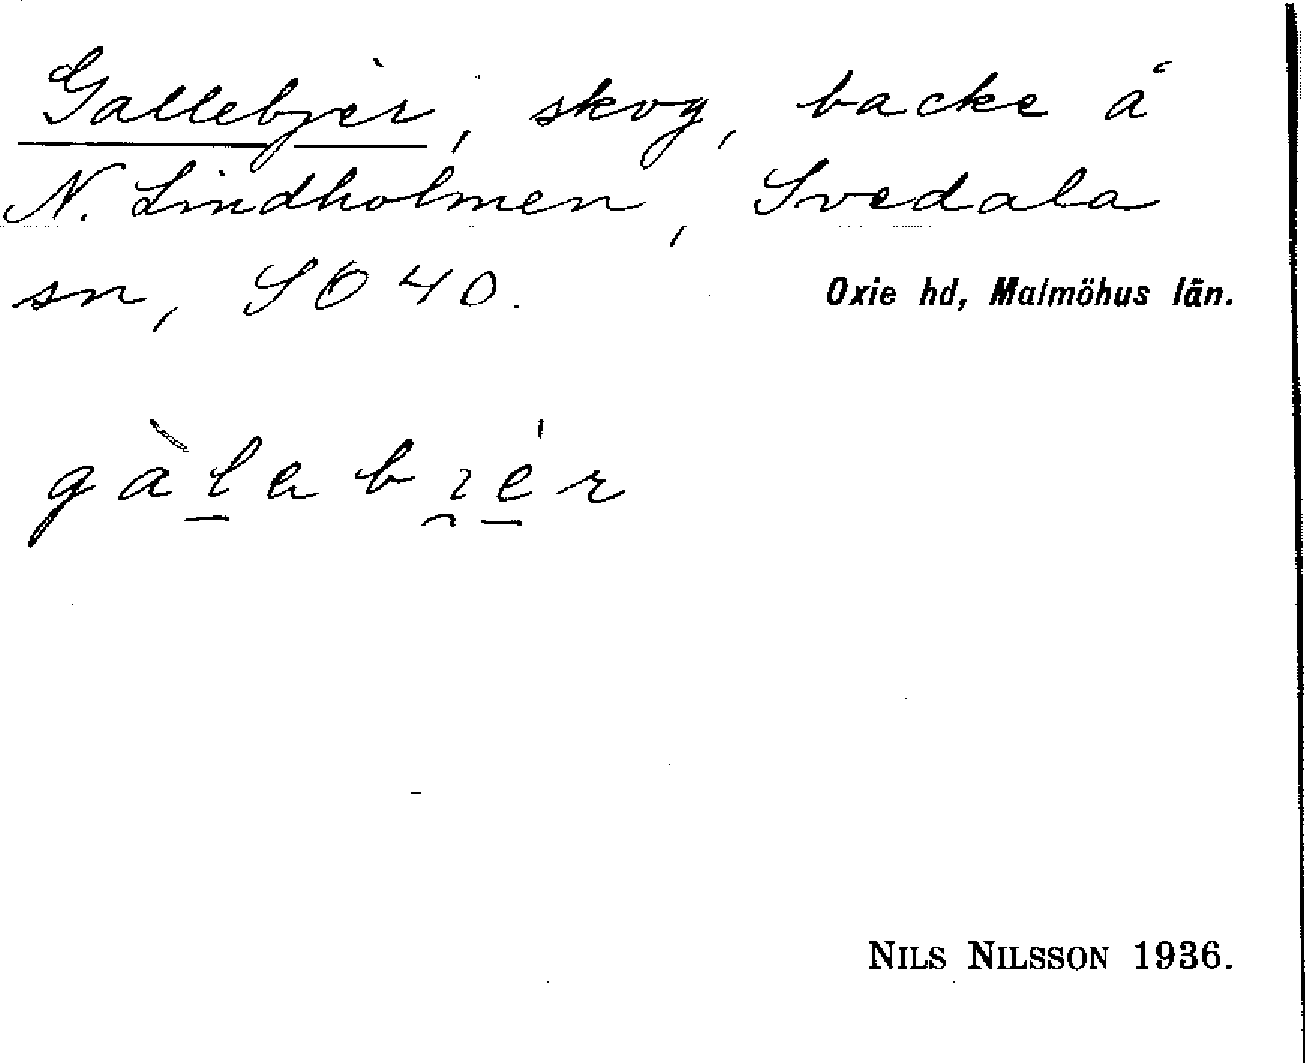 Gallebjèr, skog, backe å
N. Lindholmen, Svedala
sn, SO 40.
Oxie hd, Malmöhus län.
gàlabɿér
NILS NILSSON 1936.